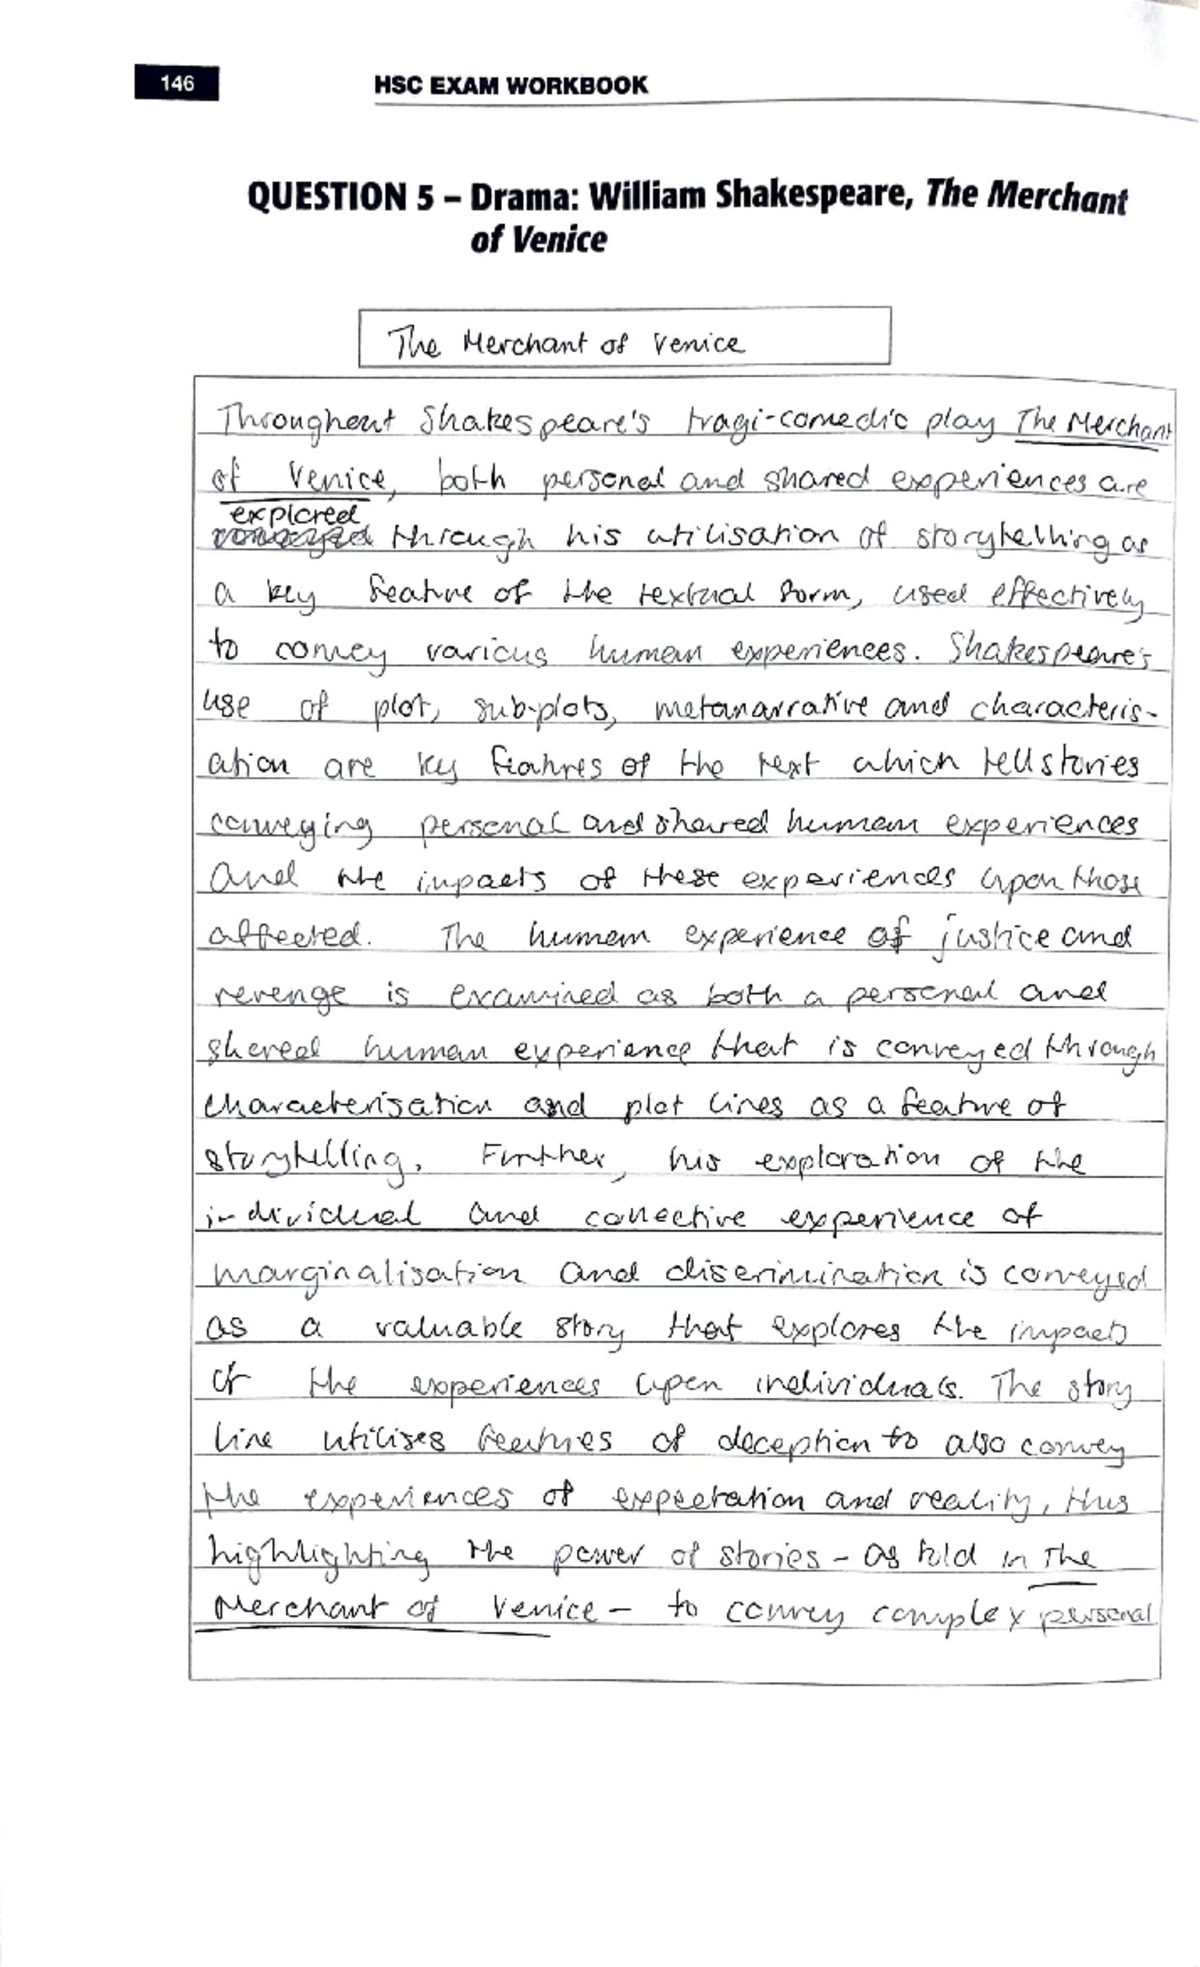 146
HSC EXAM WORKBOOK
QUESTION 5 – Drama: William Shakespeare, The Merchant
of Venice
The Merchant of Venice
Throughout Shakespeare's tragi-comedic play The Merchant
of Venice, both personal and shared experiences are
explored
conveyed through his utilisation of storytelling as
a key feature of the textual form, used effectively
to convey various human experiences. Shakespeare's
use of plot, sub-plots, metanarrative and characteris-
ation are key features of the text which tell stories
conveying personal and shared human experiences
and the impacts of these experiences upon those
affected. The human experience of justice and
revenge is examined as both a personal and
shared human experience that is conveyed through
characterisation and plot lines as a feature of
storytelling. Further, his exploration of the
individual and collective experience of
marginalisation and discrimination is conveyed
as a valuable story that explores the impacts
of the experiences upon individuals. The story
line utilises features of deception to also convey
the experiences of expectation and reality, thus
highlighting the power of stories – as told in The
Merchant of Venice – to convey complex personal